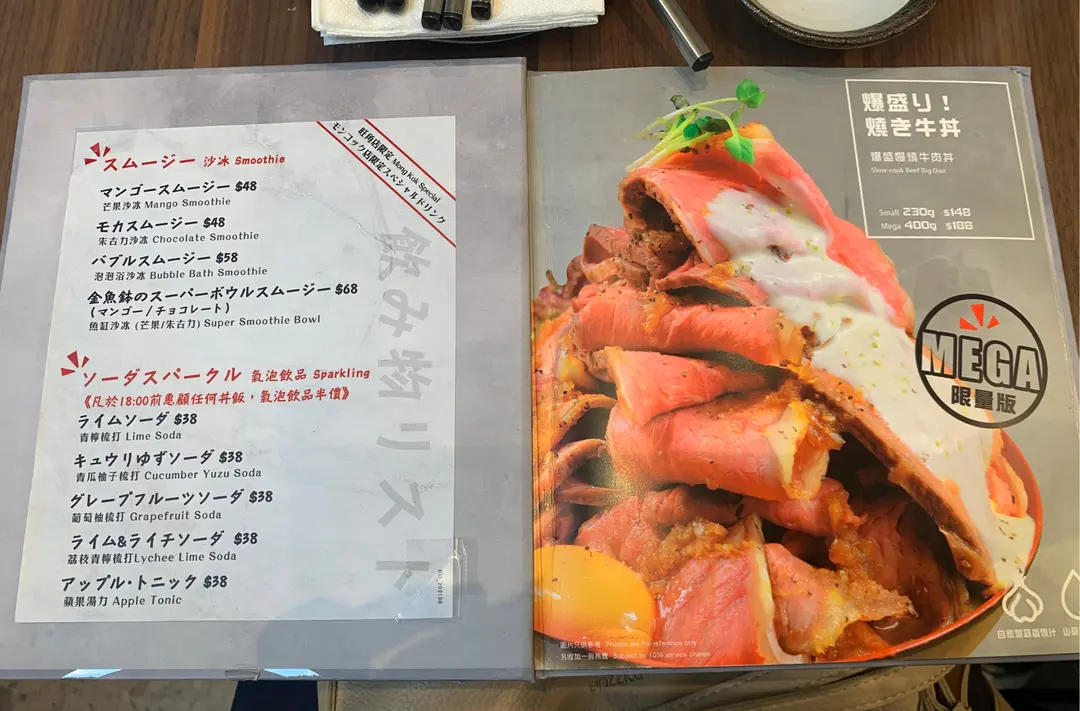 スムージー 沙冰 Smoothie
旺角店限定 Mong Kok Special
モンコック店限定スペシャルドリンク
マンゴースムージー $48
芒果沙冰 Mango Smoothie
モカスムージー $48
朱古力沙冰 Chocolate Smoothie
バブルスムージー $58
泡泡浴沙冰 Bubble Bath Smoothie
金魚鉢のスーパーボウルスムージー $68
(マンゴー/チョコレート)
魚缸沙冰 (芒果/朱古力) Super Smoothie Bowl
ソーダスパークル 氣泡飲品 Sparkling
《凡於18:00前惠顧任何丼飯，氣泡飲品半價》
ライムソーダ $38
青檸梳打 Lime Soda
キュウリゆずソーダ $38
青瓜柚子梳打 Cucumber Yuzu Soda
グレープフルーツソーダ $38
葡萄柚梳打 Grapefruit Soda
ライム&ライチソーダ $38
荔枝青檸梳打Lychee Lime Soda
アップル·トニック $38
蘋果湯力 Apple Tonic
飲み物リスト
爆盛り！
燒き牛丼
爆盛慢燒牛肉丼
Slow-cook Beef Big Don
Small 230g $148
Mega 400g $188
MEGA
限量版
圖片只供參考 Photos are for reference only
另收加一服務費 Subject to 10% service charge